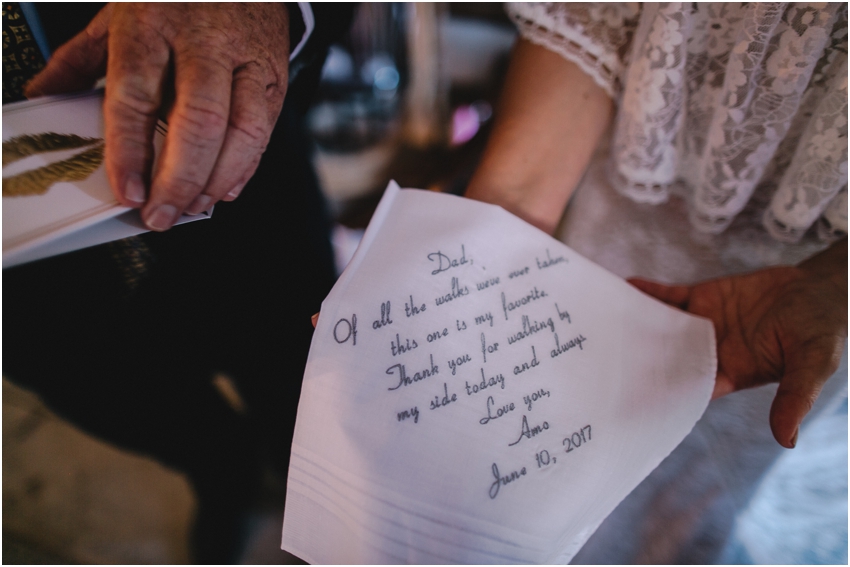 Dad,
Of all the walks weve ever taken,
this one is my favorite.
Thank you for walking by
my side today and always
Love you,
Amo
June 10, 2017